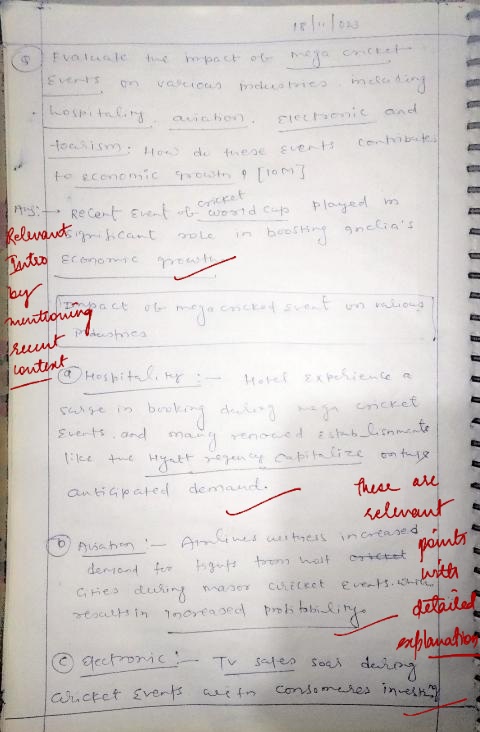 18/11/023
Q Evaluate the impact ob mega cricket
Events on various industries including
hospitality, aviation, Electronic and
tourism. How do these events contributes
to economic growth? [10M]
Ans:- → Recent Event ob cricket world cup played in
significant role in boosting india's
Economic growth.
Relevant
Intro
by
mentioning
recent
context
Impact ob mega cricked event on various
industries
(a) Hospitality :- Hotel Experience a
surge in booking during mega cricket
Events and many renowed establishments
like the Hyatt regency capitalize on this
anticipated demand.
these are
relevant
points
with
detailed
explanation
(b) Aviation :- Airlines witness increased
demand for flights from host cricket
cities during major cricket events which
results in increased profitability.
(c) Electronic :- TV sales soar during
cricket Events with consumeres investing